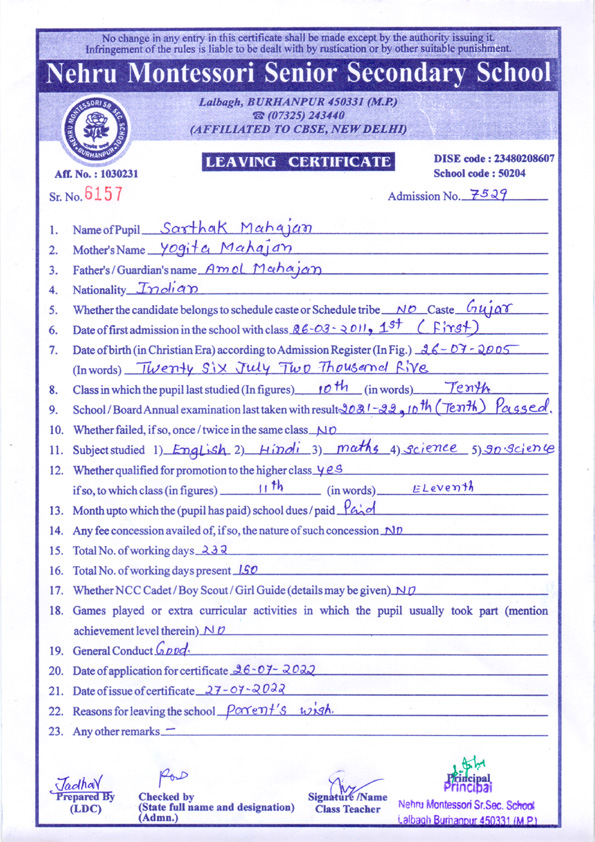 No change in any entry in this certificate shall be made except by the authority issuing it.
Infringement of the rules is liable to be dealt with by rustication or by other suitable punishment.
Nehru Montessori Senior Secondary School
Lalbagh, BURHANPUR 450331 (M.P.)
☎ (07325) 243440
(AFFILIATED TO CBSE, NEW DELHI)
NEHRU MONTESSORI SR. SEC. SCHOOL
BURHANPUR
LEAVING CERTIFICATE
DISE code : 23480208607
Aff. No. : 1030231
School code : 50204
Sr. No. 6157
Admission No. 7529
1. Name of Pupil Sarthak Mahajan
2. Mother's Name Yogita Mahajan
3. Father's / Guardian's name Amol Mahajan
4. Nationality Indian
5. Whether the candidate belongs to schedule caste or Schedule tribe NO Caste Gujar
6. Date of first admission in the school with class 26-03-2011, 1st (First)
7. Date of birth (in Christian Era) according to Admission Register (In Fig.) 26-07-2005
(In words) Twenty Six July Two Thousand Five
8. Class in which the pupil last studied (In figures) 10th (in words) Tenth
9. School / Board Annual examination last taken with result 2021-22, 10th (Tenth) Passed.
10. Whether failed, if so, once / twice in the same class NO
11. Subject studied 1) English 2) Hindi 3) maths 4) science 5) so.science
12. Whether qualified for promotion to the higher class yes
if so, to which class (in figures) 11th (in words) Eleventh
13. Month upto which the (pupil has paid) school dues / paid Paid
14. Any fee concession availed of, if so, the nature of such concession NO
15. Total No. of working days 232
16. Total No. of working days present 150
17. Whether NCC Cadet / Boy Scout / Girl Guide (details may be given) NO
18. Games played or extra curricular activities in which the pupil usually took part (mention
achievement level therein) NO
19. General Conduct Good.
20. Date of application for certificate 26-07-2022
21. Date of issue of certificate 27-07-2022
22. Reasons for leaving the school Parent's wish.
23. Any other remarks —
Jadhav
Prepared By
(LDC)
Checked by
(State full name and designation)
(Admn.)
Signature /Name
Class Teacher
Principal
Principal
Nehru Montessori Sr.Sec. School
Lalbagh Burhanpur 450331 (M.P.)